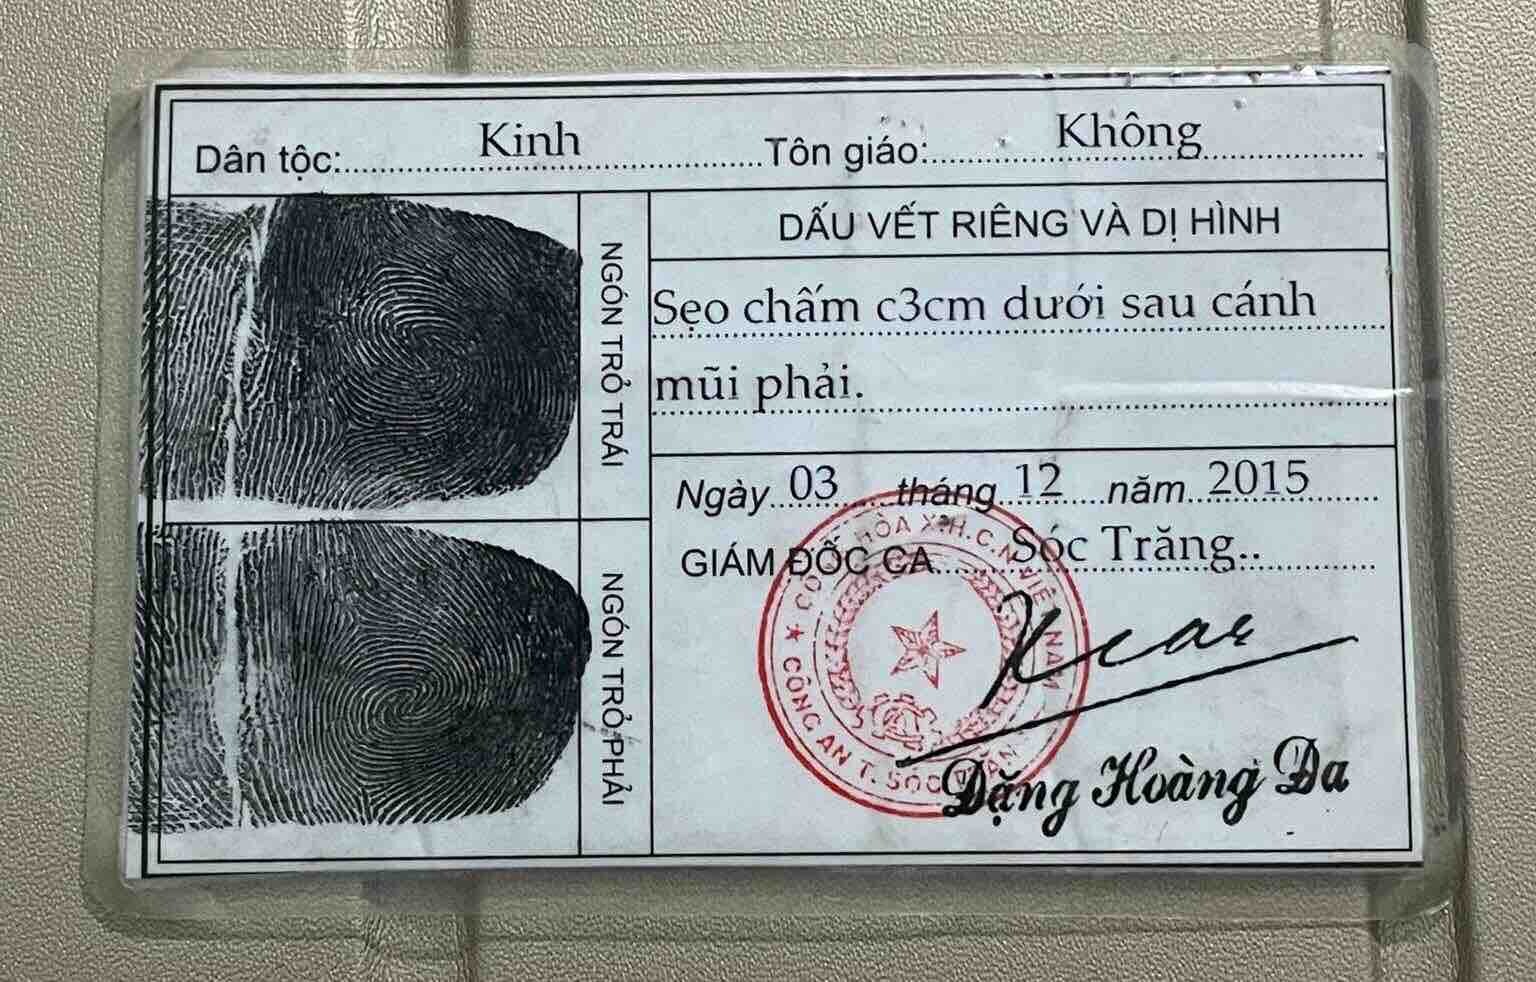 Dân tộc: Kinh Tôn giáo: Không
NGÓN TRỎ TRÁI
DẤU VẾT RIÊNG VÀ DỊ HÌNH
Sẹo chấm c3cm dưới sau cánh
mũi phải.
NGÓN TRỎ PHẢI
Ngày 03 tháng 12 năm 2015
GIÁM ĐỐC CA Sóc Trăng..
HÒA X.H.C.N VIỆT NAM
★ CÔNG AN T. SÓC
Đặng Hoàng Đa